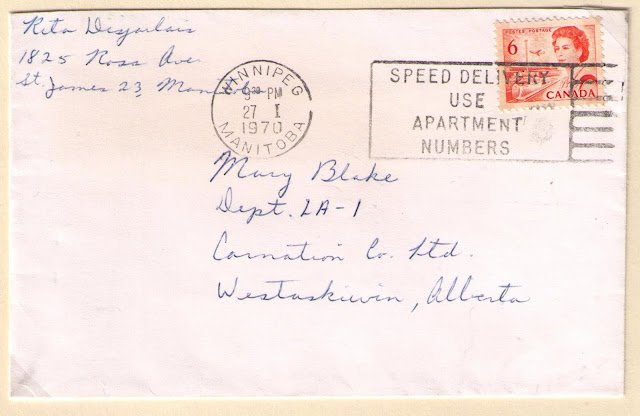 Rita Desjarlais
1825 Ross Ave
St. James 23, Manitoba
WINNIPEG
PM
27 I
1970
MANITOBA
SPEED DELIVERY
USE
APARTMENT
NUMBERS
POSTES POSTAGE
6
CANADA
Mary Blake
Dept. LA-1
Carnation Co. Ltd.
Westaskiwin, Alberta